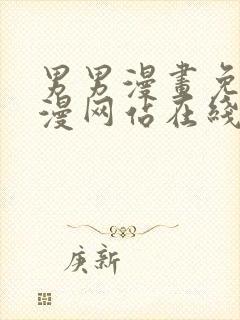 男男漫畫免
漫网佔在綫
庚新